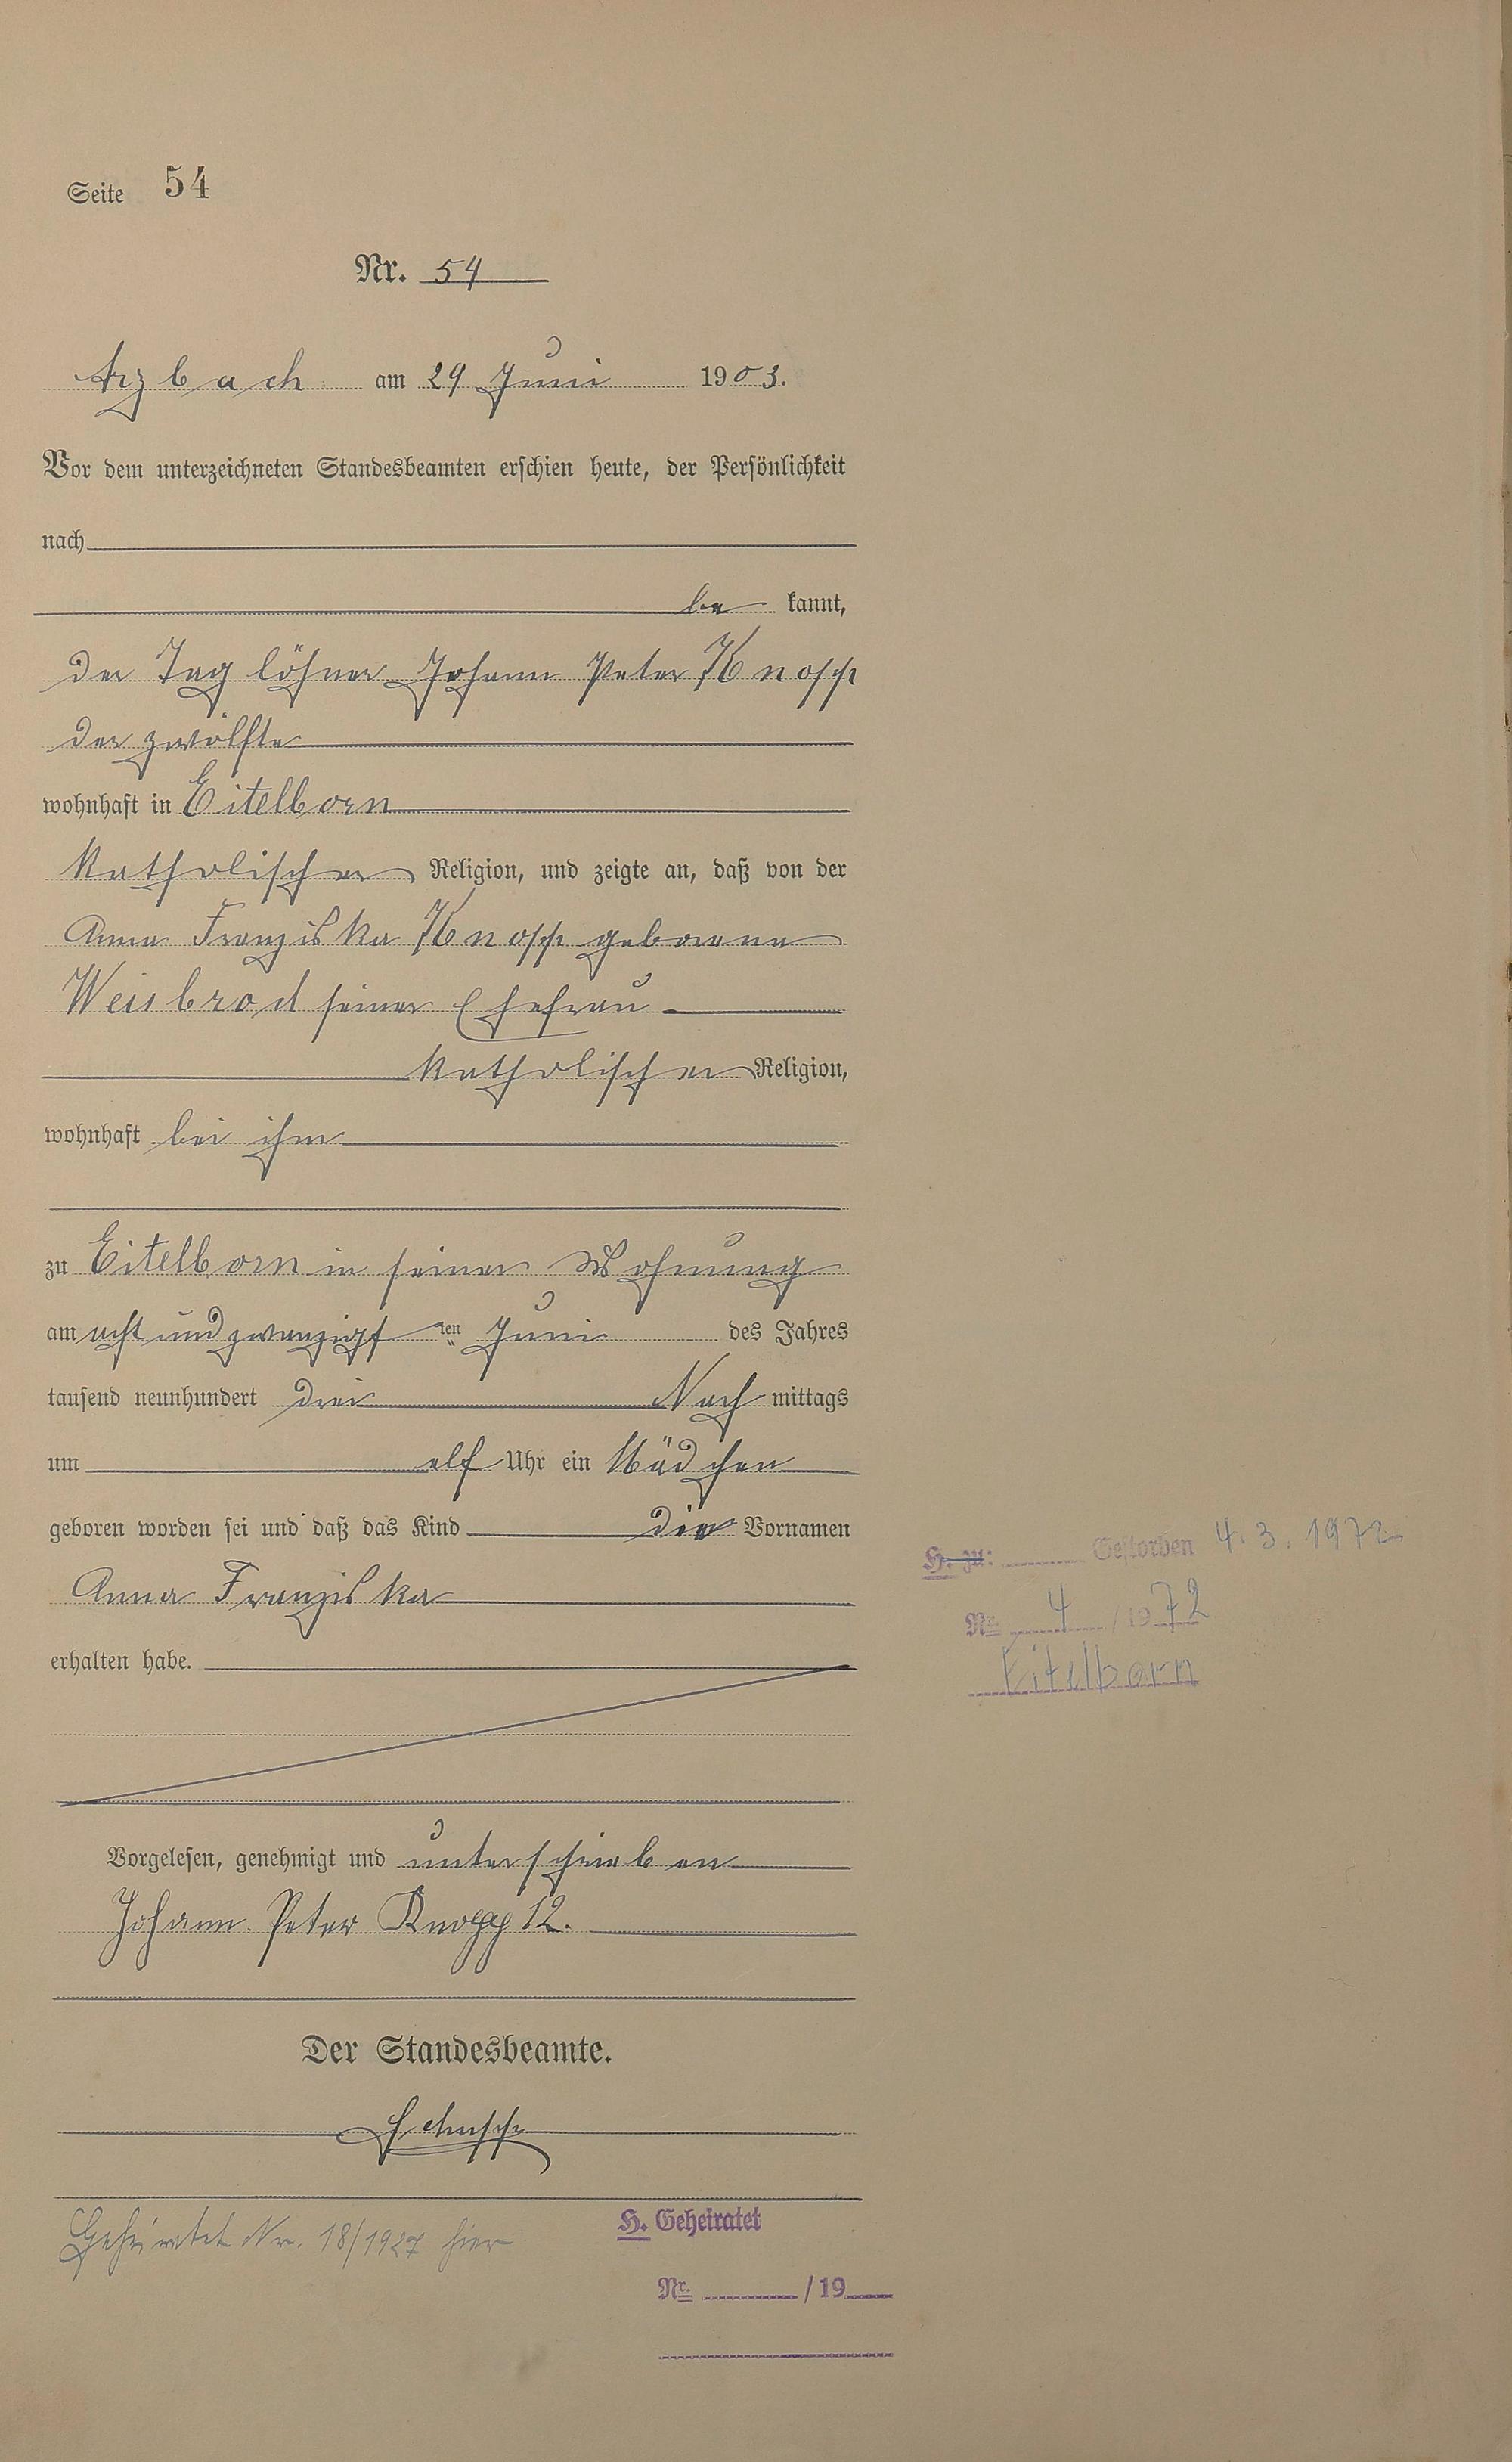 Seite 54
Nr. 54
Arzbach am 29 Juni 1903.
Vor dem unterzeichneten Standesbeamten erschien heute, der Persönlichkeit
nach
be kannt,
der Tag löhner Johann Peter Knopp
der zwölfte
wohnhaft in Eitelborn
katholischer Religion, und zeigte an, daß von der
Anna Franziska Knopp geborene
Weisbrod seiner Ehefrau
katholischer Religion,
wohnhaft bei ihm
zu Eitelborn in seiner Wohnung
am acht und zwanzigs ten Juni des Jahres
tausend neunhundert drei Nach mittags
um elf Uhr ein Mädchen
geboren worden sei und daß das Kind die Vornamen
Anna Franziska
erhalten habe.
H. zu: Gestorben 4. 3. 1972
Nr. 4 / 1972
Eitelborn
Vorgelesen, genehmigt und unterschrieben
Johann Peter Knopp 12.
Der Standesbeamte.
Geheiratet Nr. 18/1927 hier
H. Geheiratet
Nr. / 19